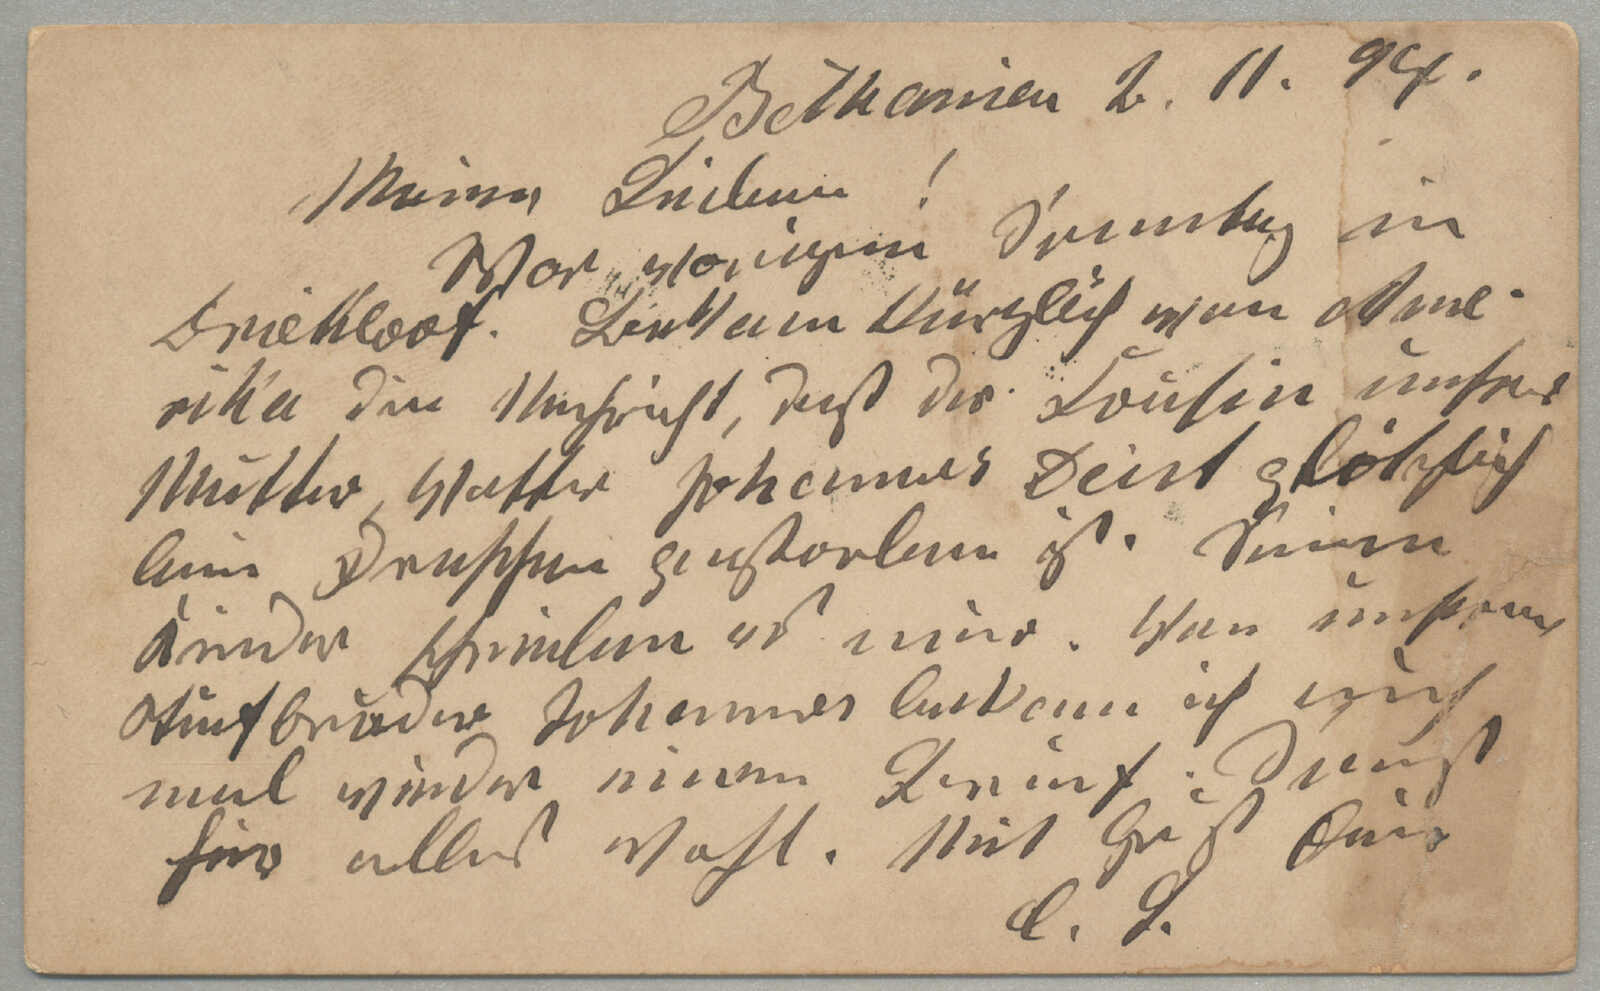 Bethanien 2. 11. 94.
Meine Lieben!
War vorigen Sonntag in
Driekloof. Bekam kürzlich von Ame-
rika die Nachricht, daß der Cousin unsrer
Mutter, Vetter Johannes Deist plötzlich
beim Dreschen gestorben ist. Seine
Kinder schrieben es mir. Von unserm
Stiefbruder Johannes bekam ich auch
mal wieder einen Brief. Sonst
hier alles wohl. Mit Gruß Euer
C. S.